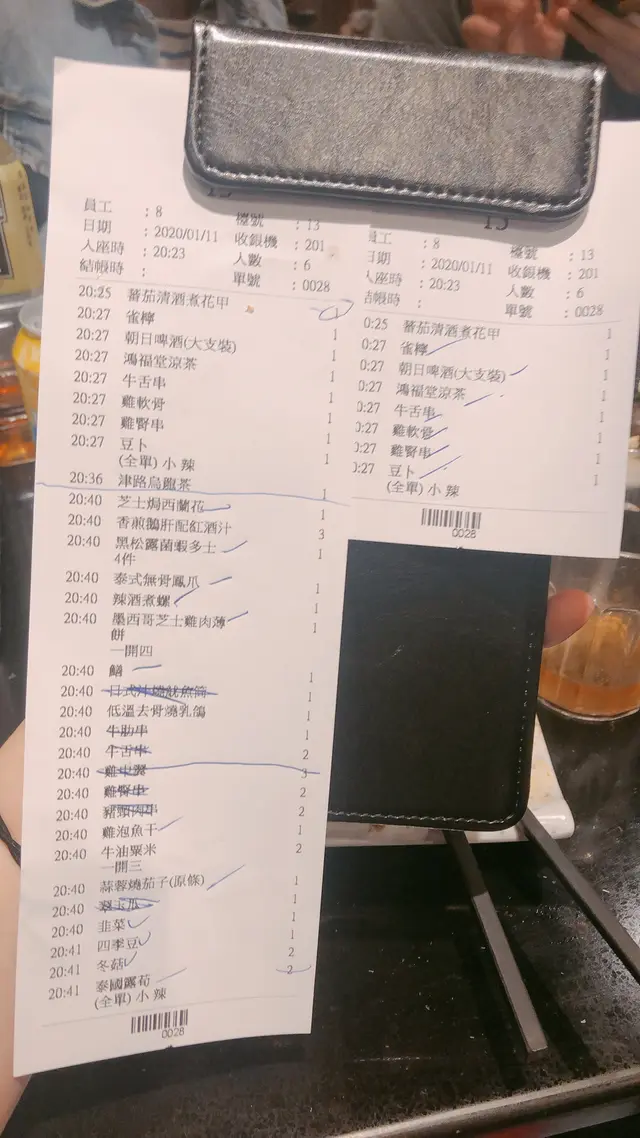 員工 : 8 檯號 : 13
日期 : 2020/01/11 收銀機 : 201
入座時 : 20:23 人數 : 6
結帳時 : 單號 : 0028
20:25 蕃茄清酒煮花甲
20:27 雀檸 1
20:27 朝日啤酒(大支裝) 1
20:27 鴻福堂涼茶 1
20:27 牛舌串 1
20:27 雞軟骨 1
20:27 雞腎串 1
20:27 豆卜 1
(全單) 小 辣
20:36 津路烏龍茶 1
20:40 芝士焗西蘭花 1
20:40 香煎鵝肝配紅酒汁 3
20:40 黑松露菌蝦多士 1
4件
20:40 泰式無骨鳳爪 1
20:40 辣酒煮螺 1
20:40 墨西哥芝士雞肉薄 1
餅
一開四
20:40 鱔 1
20:40 日式汁燒魷魚筒 1
20:40 低溫去骨燒乳鴿 1
20:40 牛肋串 1
20:40 牛舌串 2
20:40 3
20:40 雞腎串 2
20:40 豬頸肉串 2
20:40 雞泡魚干 1
20:40 牛油粟米 2
一開三
20:40 蒜蓉燒茄子(原條) 1
20:40 翠玉瓜 1
20:40 韭菜 1
20:41 四季豆 1
20:41 冬菇 2
20:41 泰國露荀 2
(全單) 小 辣
0028
13
員工 : 8 檯號 : 13
日期 : 2020/01/11 收銀機 : 201
入座時 : 20:23 人數 : 6
結帳時 : 單號 : 0028
0:25 蕃茄清酒煮花甲 1
0:27 雀檸 1
0:27 朝日啤酒(大支裝) 1
0:27 鴻福堂涼茶 1
0:27 牛舌串 1
0:27 雞軟骨 1
0:27 雞腎串 1
0:27 豆卜 1
(全單) 小 辣
0028